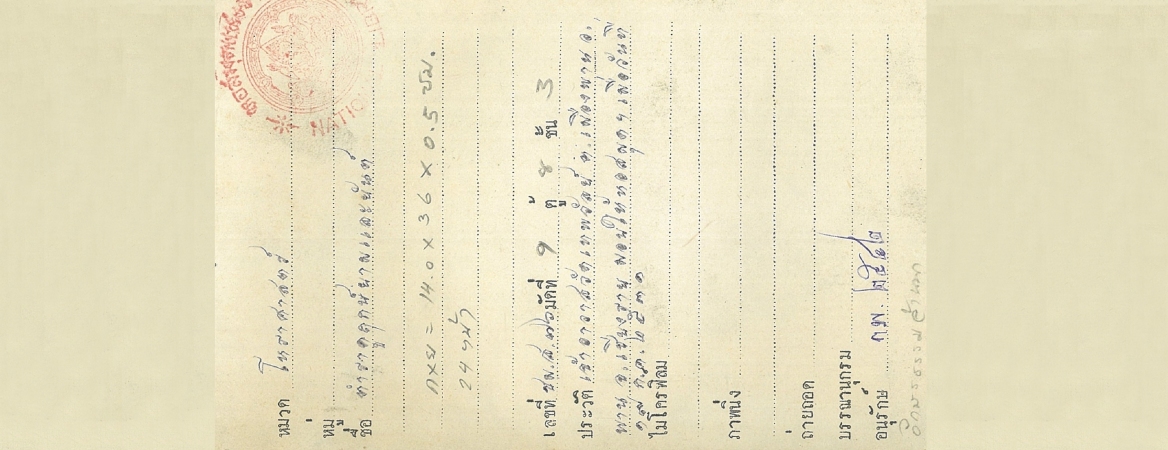 NATIO
หมวด โหราศาสตร์
หมู่
ชื่อ ตำราดูฤกษ์ยามและยันต์
กxย = 14.0 x 36 x 0.5 ซม.
24 หน้า
เลขที่ ชม.ส. มัดที่ 9 ตู้ 8 ชั้น 3
ประวัติ เจ้าอาวาสวัด ต.เมืองพาน อ.
พาน จ.เชียงราย มอบให้หอสมุดฯ เมื่อวันที่
๑๘ ๒๕๓๑
ไมโครฟิล์ม
ภาพนิ่ง
ถ่ายถอด
บรรณานุกรม
อนุรักษ์ กพ. ๒๕๔๒
อักษรธรรมล้านนา